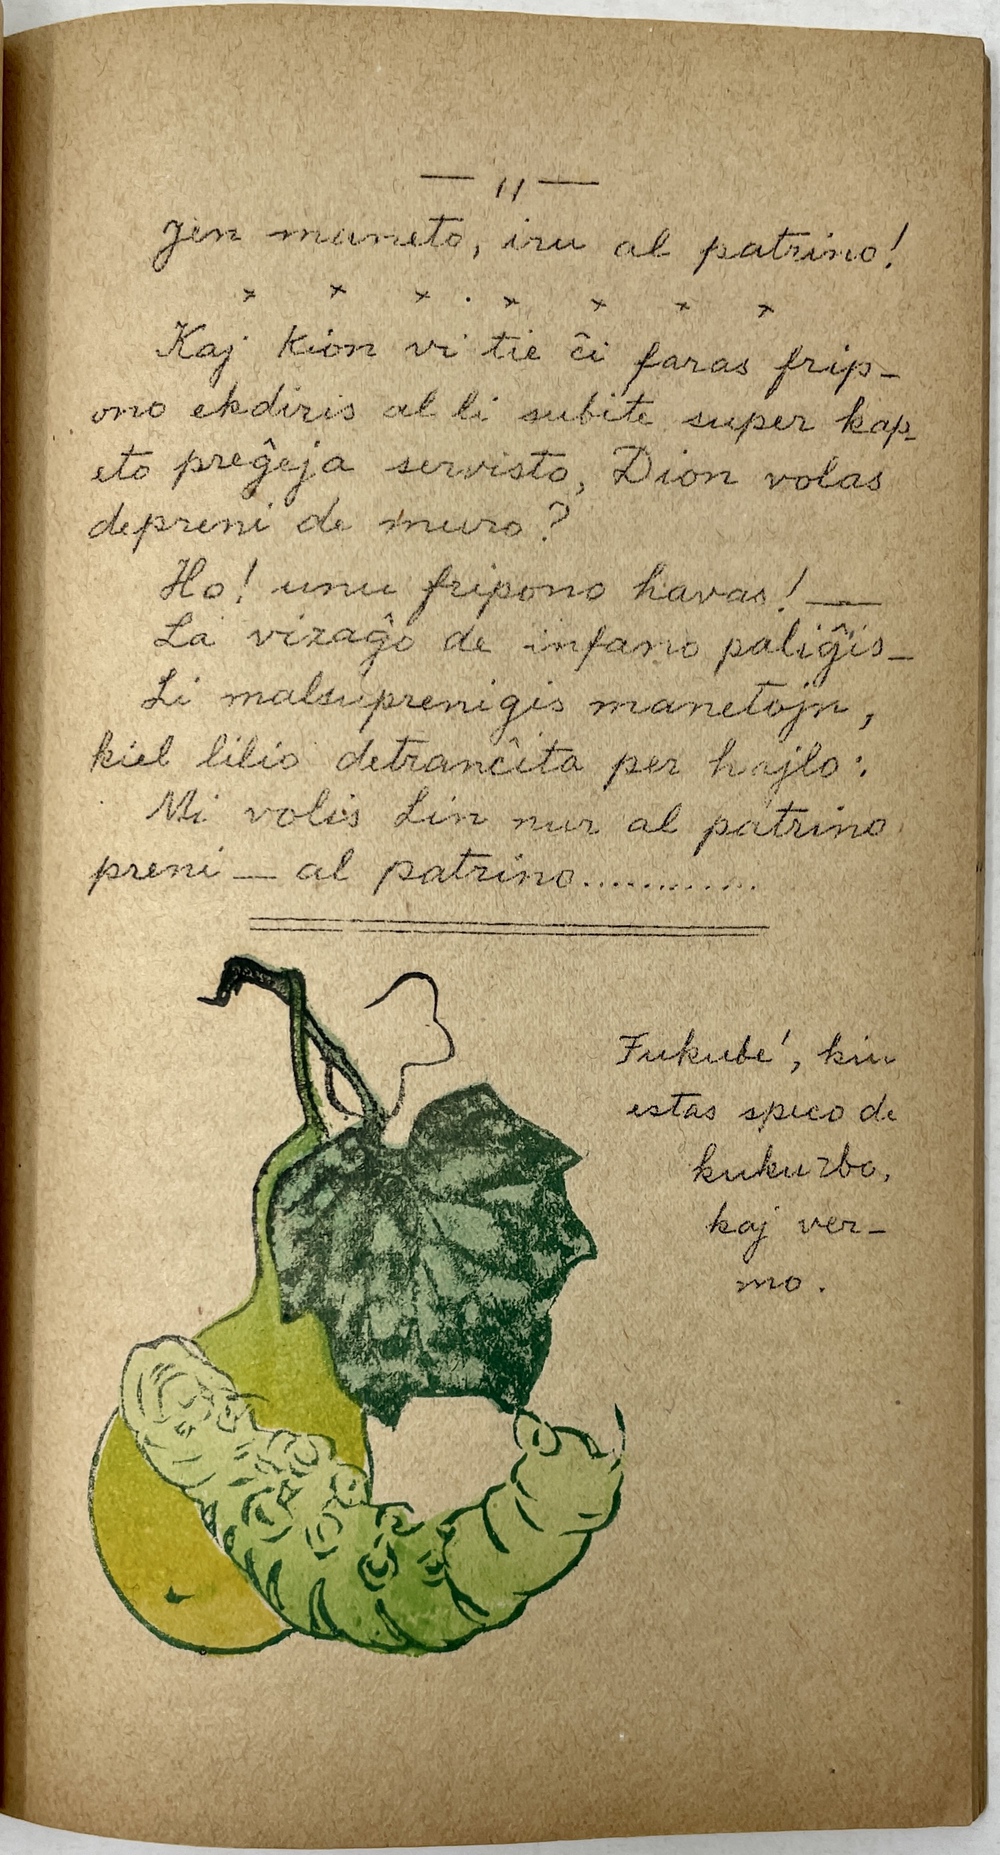 — 11 —
Jen maneto, iru al patrino!
x x x . x x x x
Kaj kion vi tie ĉi faras frip-
ono ekdiris al li subite super kap-
eto preĝeja servisto, Dion volas
depreni de muro?
Ho! unu fripono havas! —
La vizaĝo de infano paliĝis —
Li malsuprenigis manetojn,
kiel lilio detranĉita per hajlo:
Mi volis Lin nur al patrino
preni — al patrino............
Fukube', kiu
estas speco de
kukurbo,
kaj ver-
mo.